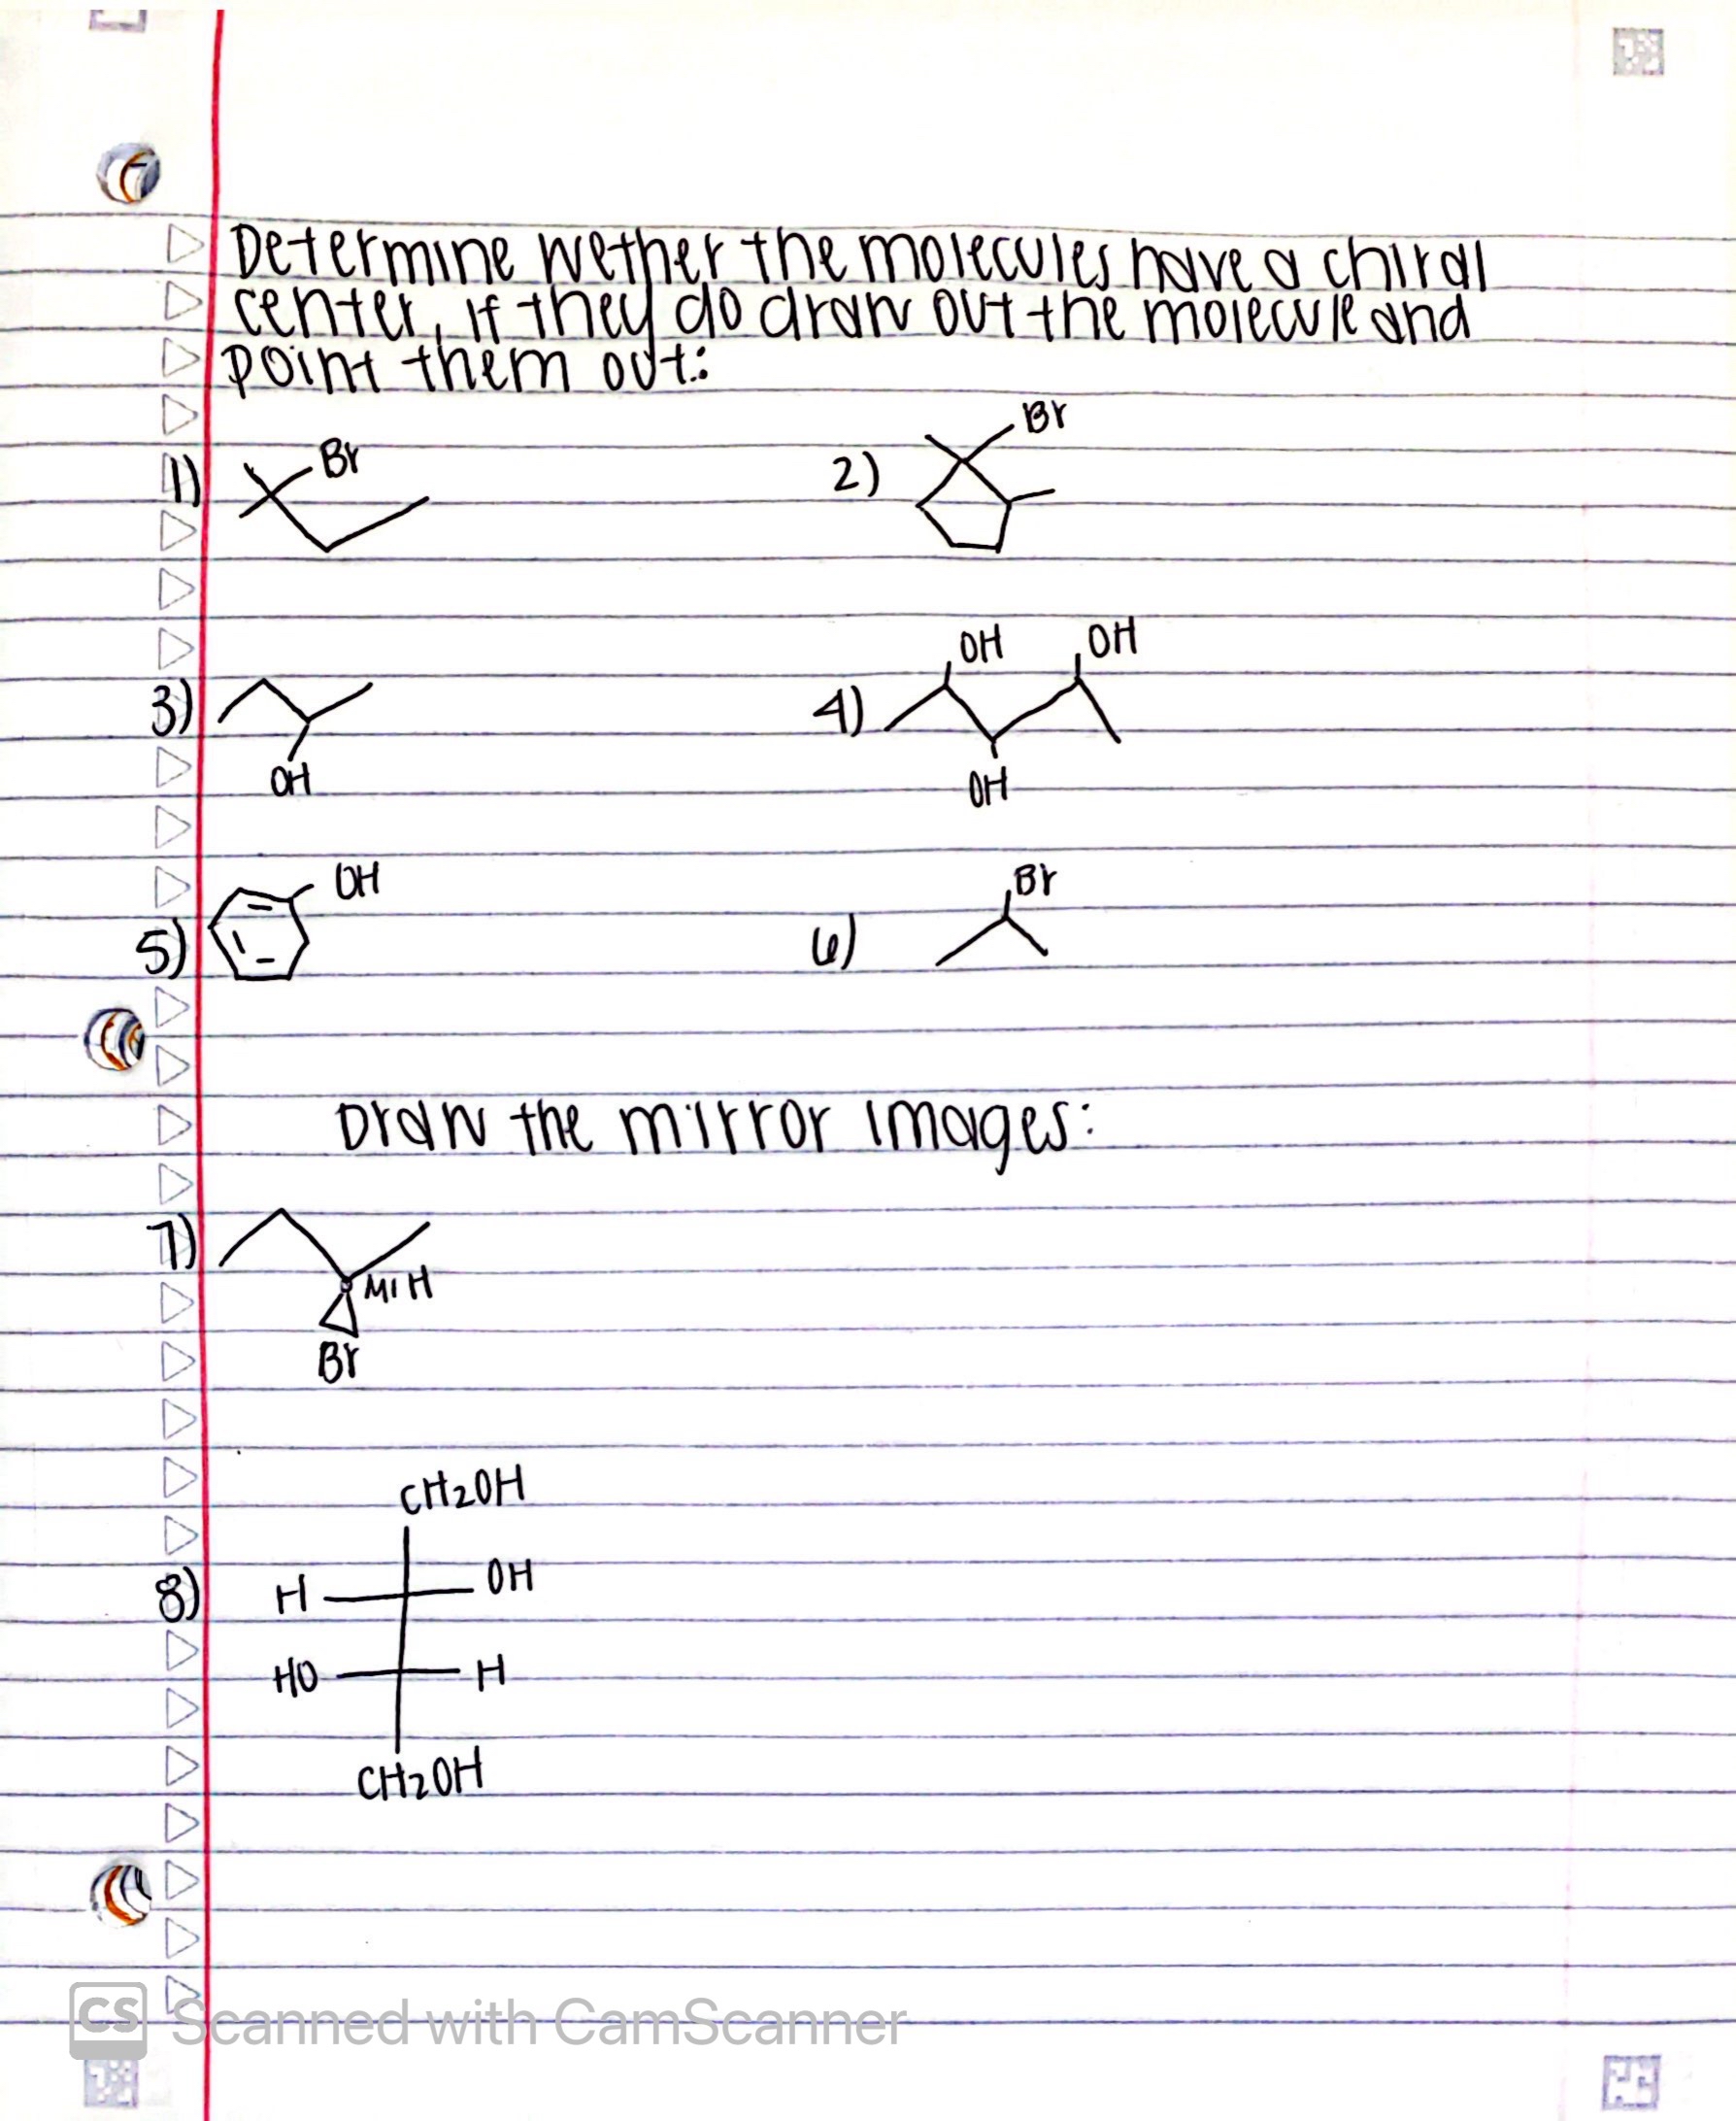 Determine wether the molecules have a chiral
center, if they do draw out the molecule and
point them out:
1) Br
2) Br
3) OH
4) OH OH
OH
5) OH
6) Br
Draw the mirror images:
7) H
Br
CH2OH
8) H OH
HO H
CH2OH
CS Scanned with CamScanner